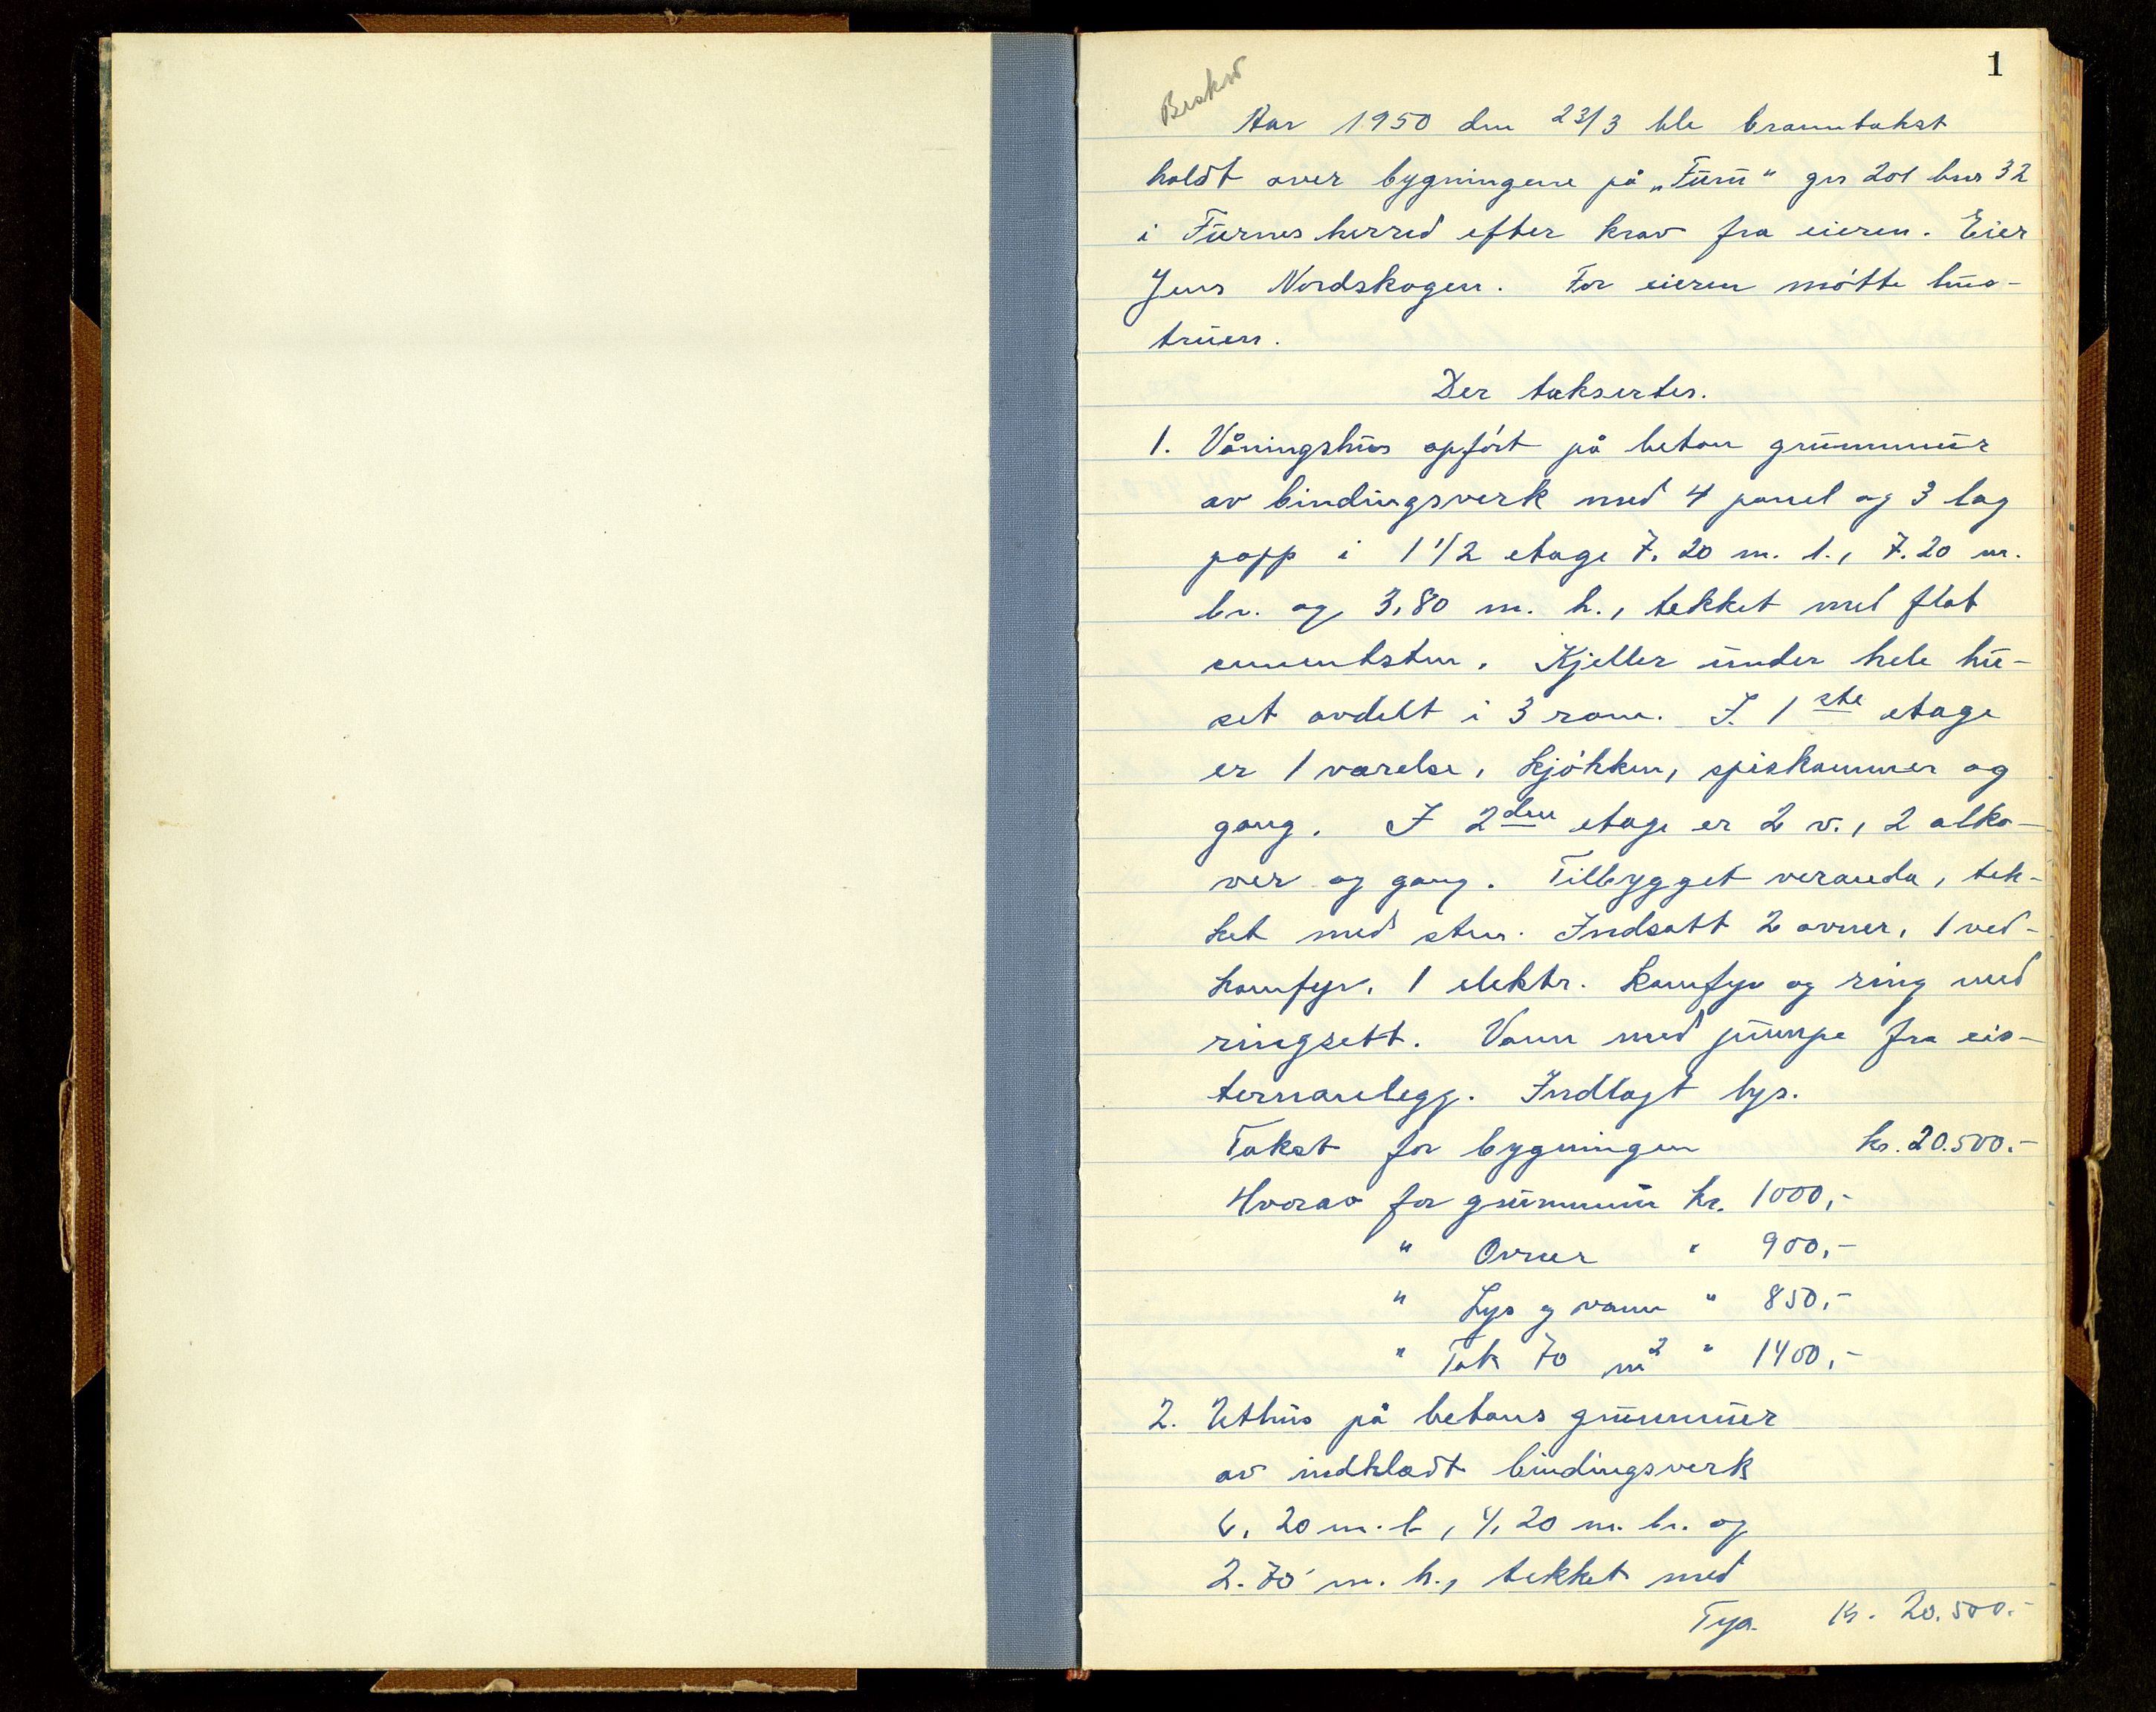 1
Aar 1950 den 23/3 ble branntakst
holdt over bygningene på „Furu“ gnr 201 bnr 32
i Furnes herred efter krav fra eieren. Eier
Jens Nordskogen. For eieren møtte hus-
truen.
Der taksertes.
1. Våningshus opført på beton grunnmur
av bindingsverk med 4 panel og 3 lag
papp i 1 1/2 etage 7,20 m. l., 7.20 m.
br. og 3,80 m. h., tekket med flat
cementsten. Kjeller under hele hu-
set avdelt i 3 rom. I 1ste etage
er 1 værelse, kjøkken, spiskammer og
gang. I 2den etage er 2 v., 2 alko-
ver og gang. Tilbygget veranda, tek-
ket med sten. Indsatt 2 ovner, 1 ved-
komfyr, 1 elektr. komfyr og ring med
ringsett. Vann med pumpe fra cis-
ternanlegg. Indlagt lys.
Takst for bygningen kr. 20.500.-
Hvorav for grunnmur kr. 1000,-
" Ovner " 900,-
" Lys og vann " 850,-
" Tak 70 m2 " 1400,-
2. Uthus på betons grunnmur
av indklædt bindingsverk
6,20 m. l., 4,20 m. br. og
2.70 m. h., tekket med
Kr. 20.500.-